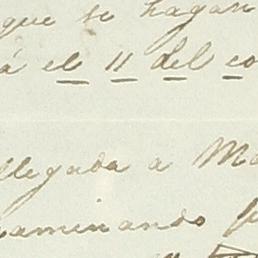 que se hagan
á el 11 del co
llegada a Ma
caminando p